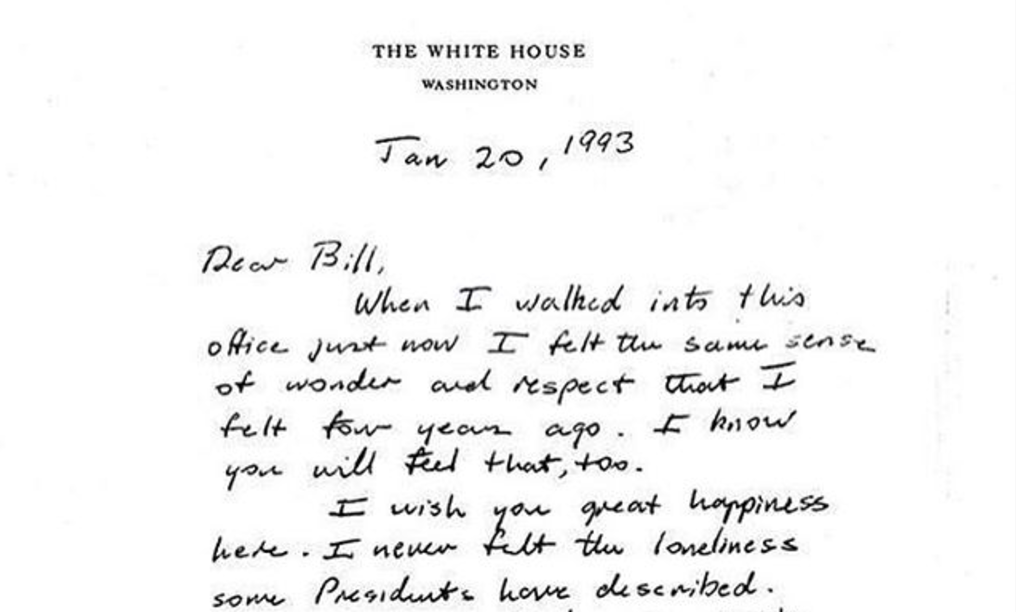 THE WHITE HOUSE
WASHINGTON
Jan 20, 1993
Dear Bill,
When I walked into this
office just now I felt the same sense
of wonder and respect that I
felt four years ago. I know
you will feel that, too.
I wish you great happiness
here. I never felt the loneliness
some Presidents have described.